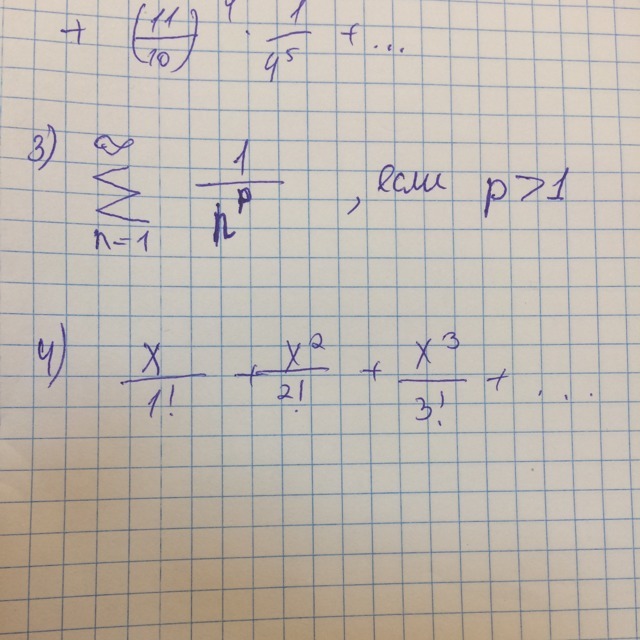 + (11/10)^4 · 1/4^5 + ...
3) ∞ ∑ n=1 1/n^p , если p>1
4) x/1! + x^2/2! + x^3/3! + ....